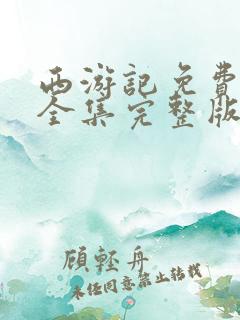 西游記免費
全集完整版
顧輕舟
未经同意禁止转载